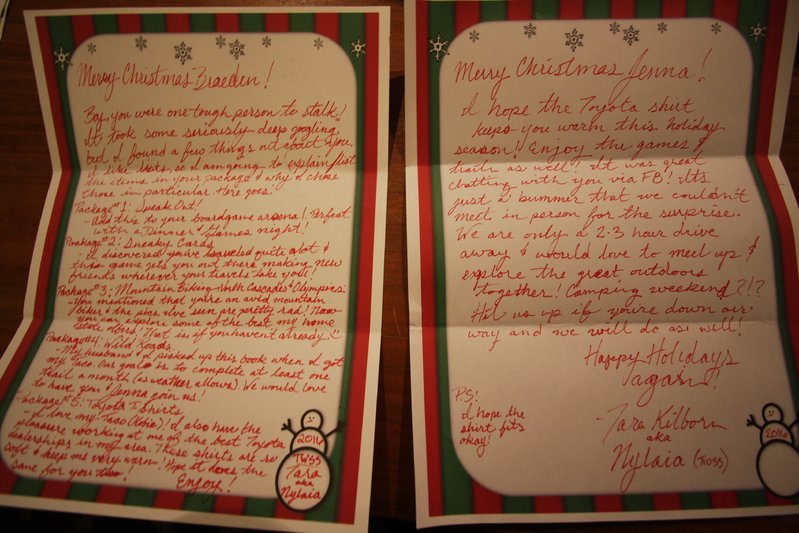 Merry Christmas Braeden!
Boy, you were one tough person to stalk!
It took some seriously deep googling,
but I found a few things out about you.
I like lists, so I am going to explain/list
the items in your package & why I chose
those in particular. Here goes:
Package #1: Speak Out!
- Add this to your boardgame arsenal. Perfect
with a Dinner & Games night!
Package #2: Sneaky Cards
- I discovered you've traveled quite a lot &
this game gets you out there making new
friends wherever your travels take you!
Package #3: Mountain Biking North Cascades & Olympics:
- You mentioned that you're an avid mountain
biker & the pics I've seen are pretty rad! Now
you can explore some of the best my home
state offers! That is, if you haven't already.
Package #4: Wild Roads
- My husband & I picked up this book when I got
my Taco. Our goal is to complete at least one
trail a month (as weather allows). We would love
to have you & Jenna join us!
Package #5: Toyota T-Shirts
- I love my Taco! I also have the
pleasure working at one of the best Toyota
dealerships in my area. These shirts are so
soft & keep me very warm! Hope it does the
same for you
Enjoy!
2016
TWSS
Tara
aka
Nylaia
Merry Christmas Jenna!
I hope the Toyota shirt
keeps you warm this holiday
season! Enjoy the games &
trails as well! It was great
chatting with you via FB! It's
just a bummer that we couldn't
meet in person for the surprise.
We are only a 2-3 hour drive
away & would love to meet up &
explore the great outdoors
together! Camping weekend?!?
Hit us up if you're down our
way and we will do as well!
Happy Holidays
again!
P.S!
I hope the
shirt fits
okay!
- Tara Kilborn
aka
Nylaia (TWSS)
2016